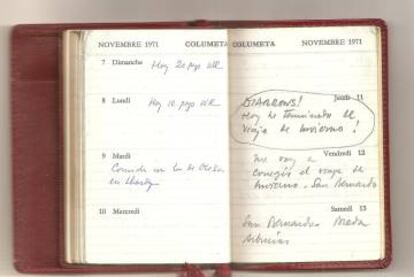 NOVEMBRE 1971 COLUMETA
7 Dimanche Hoy 20 pags
8 Lundi Hoy 10 pags
9 Mardi
Comida en
en
10 Mercredi
COLUMETA NOVEMBRE 1971
Jeudi 11
Hoy he terminado EL
viaje de invierno!
Vendredi 12
me voy a
el viaje de
invierno. San Bernardo
Samedi 13
San Bernardo.